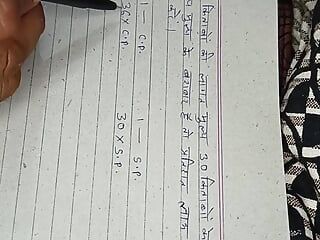 किताबों की लागत मूल्य 30 किताबों के
मूल्य के बराबर है तो प्रतिशत लाभ
1 — C.P. 1 — S.P.
36 × C.P. 30 × S.P.